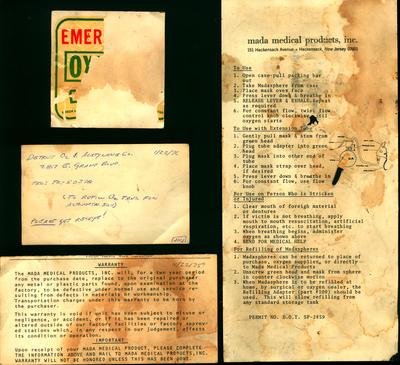 EMER
OY
DETROIT O₂ & ACETYLENE CO.
GRAND BLVD.
(TO REFILL O₂ TANK FOR
PLEASE GET RECEIPT!
WARRANTY
The MADA MEDICAL PRODUCTS, INC. will, for a two year period
from the purchase date, replace to the original purchaser
any metal or plastic parts found, upon examination at the
factory, to be defective under normal use and service re-
sulting from defects in materials or workmanship.
Transportation charges under this warranty to be borne by
the purchaser.
This warranty is void if unit has been subject to misuse,
negligence, or accidents, or if it has been repaired or
altered outside of our factory facilities or factory approv-
ed station which, in any respect in our judgement affects
its condition or operation.
IMPORTANT
Upon receipt of your MADA MEDICAL PRODUCT, PLEASE COMPLETE
THE INFORMATION ABOVE AND MAIL TO MADA MEDICAL PRODUCTS, INC.
WARRANTY WILL NOT BE HONORED UNLESS THIS HAS BEEN DONE.
mada medical products, inc.
151 Hackensack Avenue • Hackensack, New Jersey 07601
To Use
1. Open case-pull packing bar
out
2. Take Madasphere from case
3. Place mask over face
4. Press lever down & breathe in
5. RELEASE LEVER & EXHALE. Repeat
as required
6. For constant flow, twist flow
control knob clockwise till
oxygen starts
To Use with Extension Tube
1. Gently pull mask & stem from
green head
2. Plug tube adapter into green
head
3. Plug mask into other end of
tube
4. Place mask strap over head, if
desired
5. Press lever down & breathe in
6. For constant flow, use flow
knob
For Use on Person Who is Stricken
or Injured
1. Clear mouth of foreign material
or dentures
2. If victim is not breathing, apply
mouth to mouth resuscitation, artificial
respiration, etc. to start breathing
3. When breathing begins, administer
oxygen as shown above
4. SEND FOR MEDICAL HELP
For Refilling of Madaspheres
1. Madaspheres can be returned to place of
purchase, oxygen supplier, or directly
to Mada Medical Products
2. Unscrew green head and mask from sphere
in counter clockwise motion
3. When Madasphere is to be refilled at
home, by surgical or oxygen dealer, the
Refilling Adapter (part #109) should be
used. This will allow refilling from
any standard storage tank
PERMIT NO. D.O.T. SP-2859